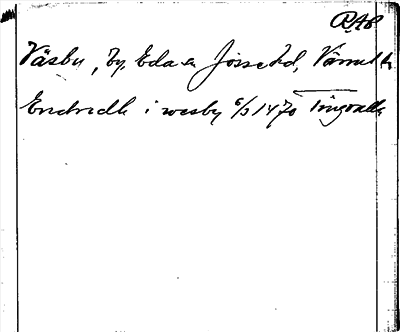 RAP
Väsby, by, Eda sn Jösse hd, Värml
Endridh i wesby 6/3 1470 Tingvalla